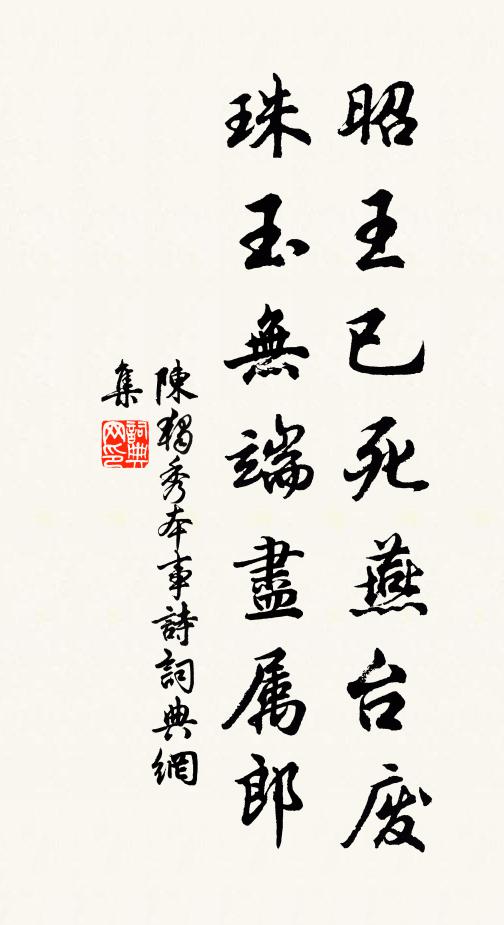 昭王已死燕台废
珠玉無端盡属郎
陳獨秀本事詩詞典網
集
詞典网印